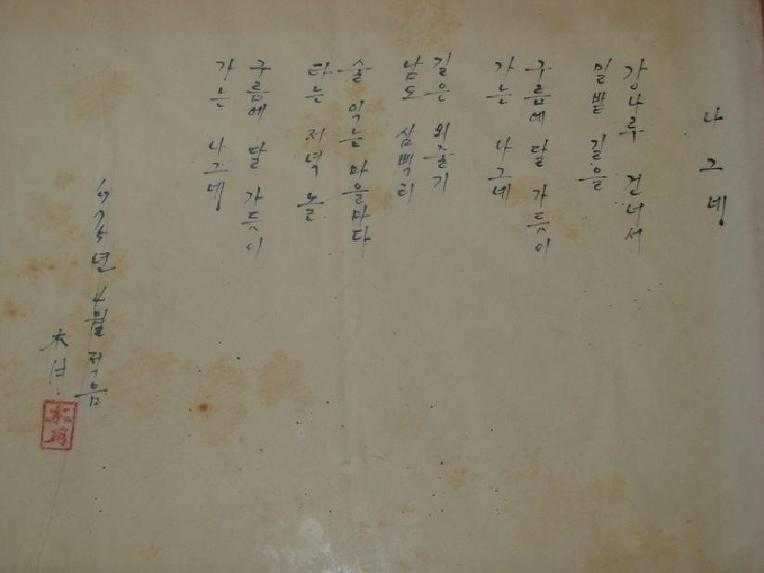 나그네
강나루 건너서
밀밭 길을
구름에 달 가듯이
가는 나그네
길은 외줄기
남도 삼백리
술 익는 마을마다
타는 저녁 놀
구름에 달 가듯이
가는 나그네
년 4월 적음
木月